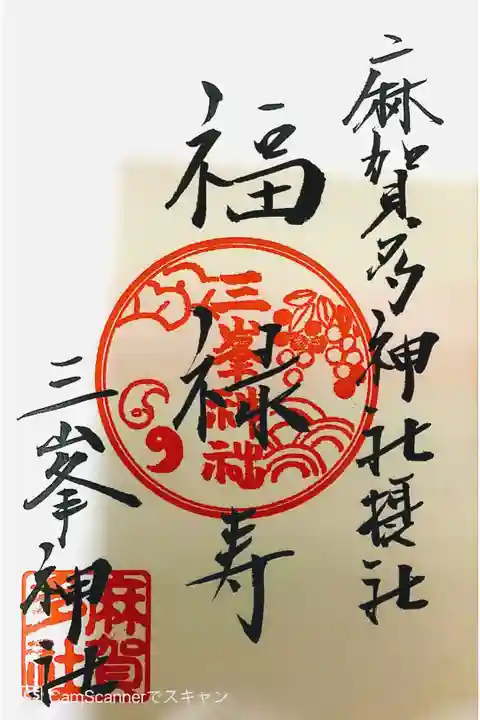 麻賀多神社摂社
福禄寿
三峯神社
三峯神社
麻賀
社
CamScannerでスキャン